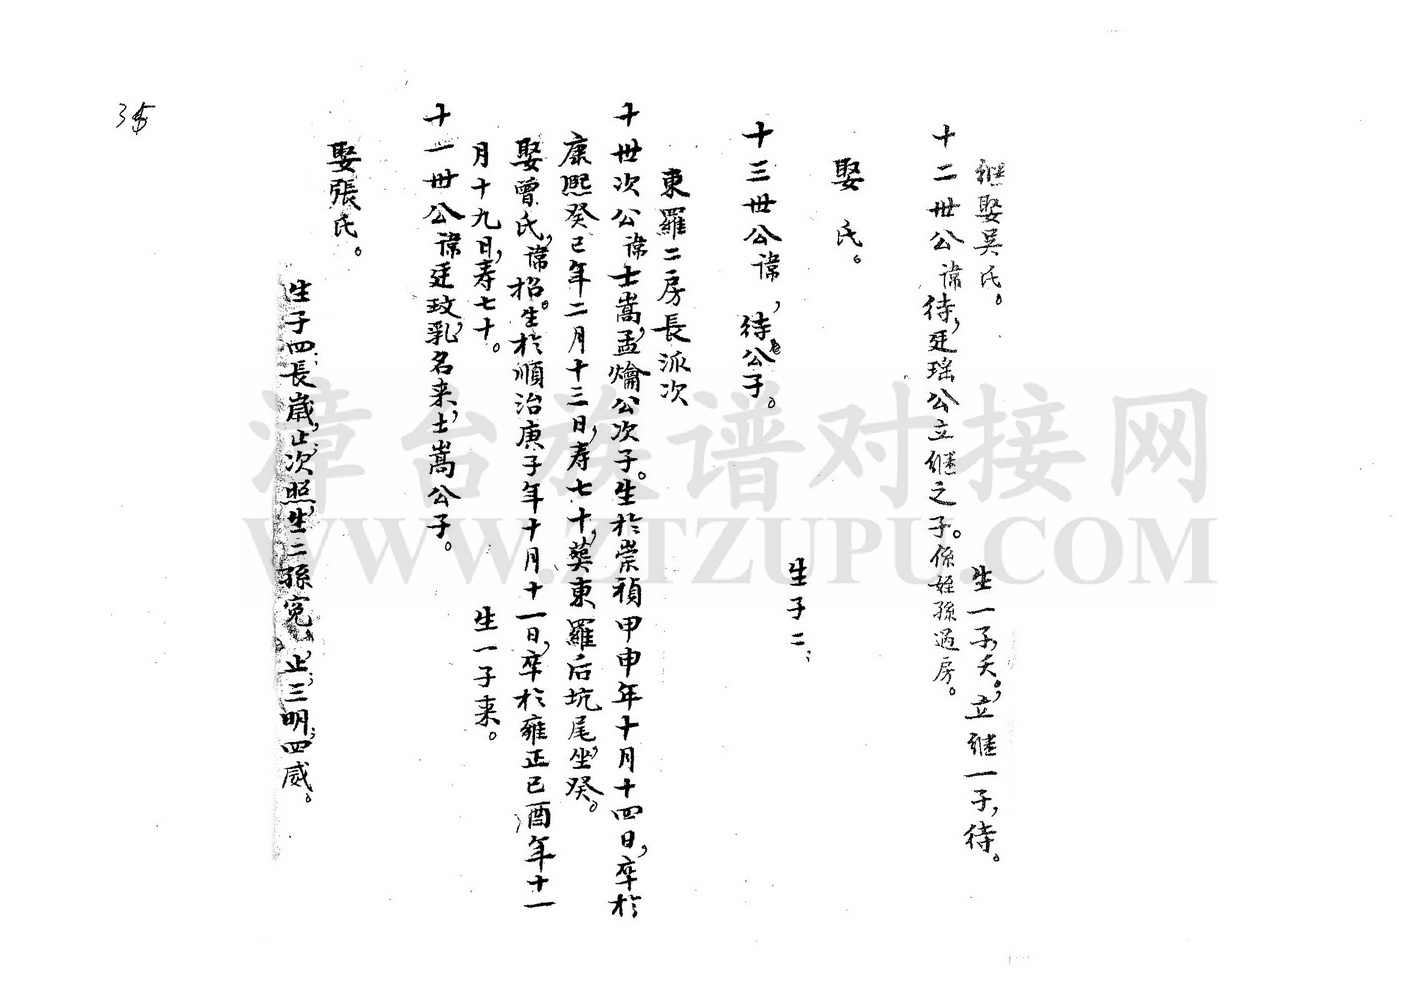 35
継娶吴氏。
生一子,夭。立継一子,待。
十二世公諱待,廷瑶公立継之子。係姪孫過房。
娶 氏。
生子二:
十三世公諱 ,待公子。
東羅二房長派次
十世次公諱士嵩,孟爚公次子。生於崇禎甲申年十月十四日,卒於
康熙癸巳年二月十三日,寿七十,葬東羅后坑尾,坐癸。
娶曾氏,諱招。生於順治庚子年十月十一日,卒於雍正己酉年十一
月十九日,寿七十。
生一子来。
十一世公諱廷玟,乳名来,士嵩公子。
娶張氏。
生子四:長歳,止;次照,生二孫宽,止;三明;四威。
漳台族谱对接网
WWW.ZTZUPU.COM